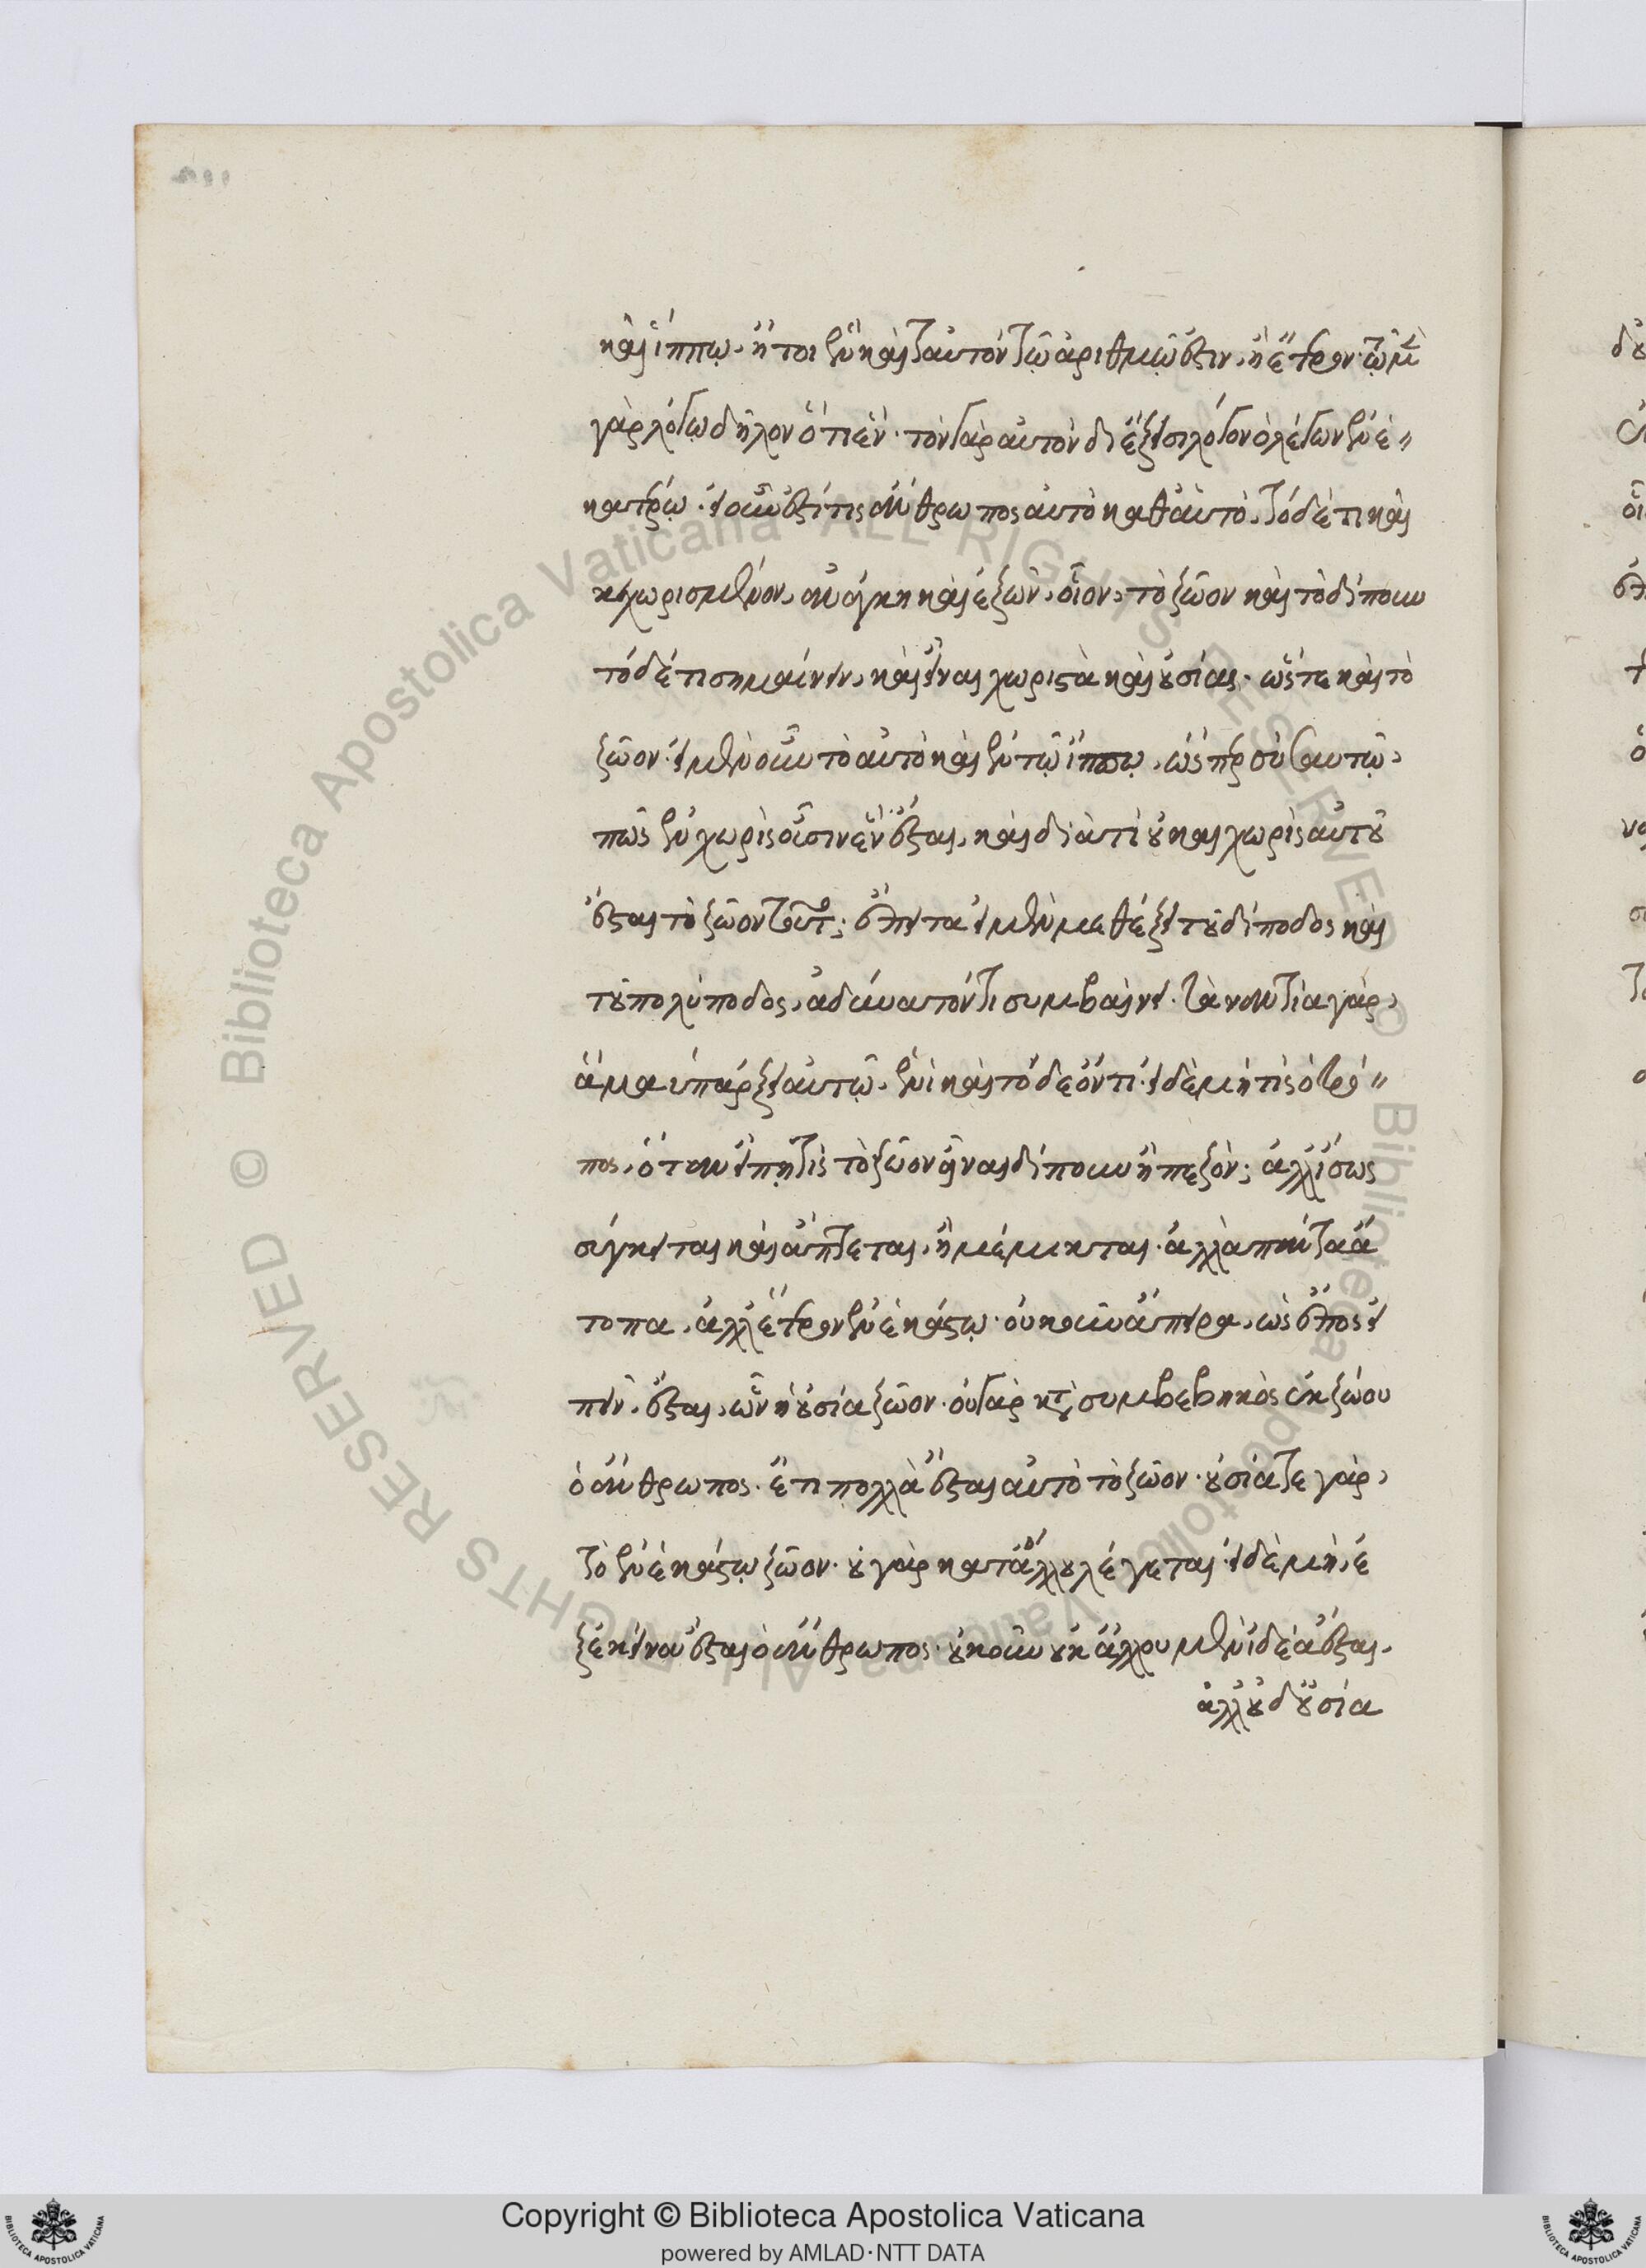 καὶ ἵππῳ. ἤτοι ἓν καὶ ταυτὸν τῷ ἀριθμῷ ἐστιν, ἢ ἕτερον. τῷ μὲν
γὰρ λόγῳ δῆλον ὅτι ἕν. τὸν γὰρ αὐτὸν διέξεισι λόγον ὁ λέγων ἐν ἑ〃
κατέρῳ. εἰ οὖν ἐστί τις ἄνθρωπος αὐτὸ καθ' αὑτὸ, τόδε τι καὶ
κεχωρισμένον, ἀνάγκη καὶ ἐξ ὧν, οἷον, τὸ ζῶον καὶ τὸ δίπουν
τόδε τι σημαίνειν, καὶ εἶναι χωριστὰ καὶ οὐσίας. ὥστε καὶ τὸ
ζῶον. εἰ μὲν οὖν τὸ αὐτὸ καὶ ἐν τῷ ἵππῳ, ὥσπερ σὺ σαυτῷ,
πῶς ἓν χωρὶς οὖσιν ἓν ἔσται, καὶ διὰ τί οὐ καὶ χωρὶς αὐτοῦ
ἔσται τὸ ζῶον τοῦτο; ἔπειτα εἰ μὲν μεθέξει τοῦ δίποδος καὶ
τοῦ πολύποδος, ἀδύνατόν τι συμβαίνει. τἀναντία γὰρ,
ἅμα ὑπάρξει αὐτῷ, ἑνὶ καὶ τόδε ὄντι. εἰ δὲ μὴ τίς ὁ τρό〃
πος, ὅταν εἴπῃ τὶς τὸ ζῶον εἶναι δίπουν ἢ πεζόν; ἀλλ' ἴσως
σύγκειται καὶ ἅπτεται, ἢ μέμικται. ἀλλὰ πάντα ἄ
τοπα, ἀλλ' ἕτερον ἐν ἑκάστῳ. οὐκοῦν ἄπειρα, ὡς ἔπος εἰ
πεῖν, ἔσται, ὧν ἡ οὐσία ζῶον. οὐ γὰρ κατὰ συμβεβηκὸς ἐκ ζώου
ὁ ἄνθρωπος. ἔτι πολλὰ ἔσται αὐτὸ τὸ ζῶον. οὐσία τε γὰρ,
τὸ ἐν ἑκάστῳ ζῶον. οὐ γὰρ κατ' ἄλλου λέγεται. εἰ δὲ μὴ, ἐ
ξ ἐκείνου ἔσται ὁ ἄνθρωπος. οὐκοῦν οὐκ ἄλλου μὲν ἰδέα ἔσται,
ἄλλου δ' οὐσία